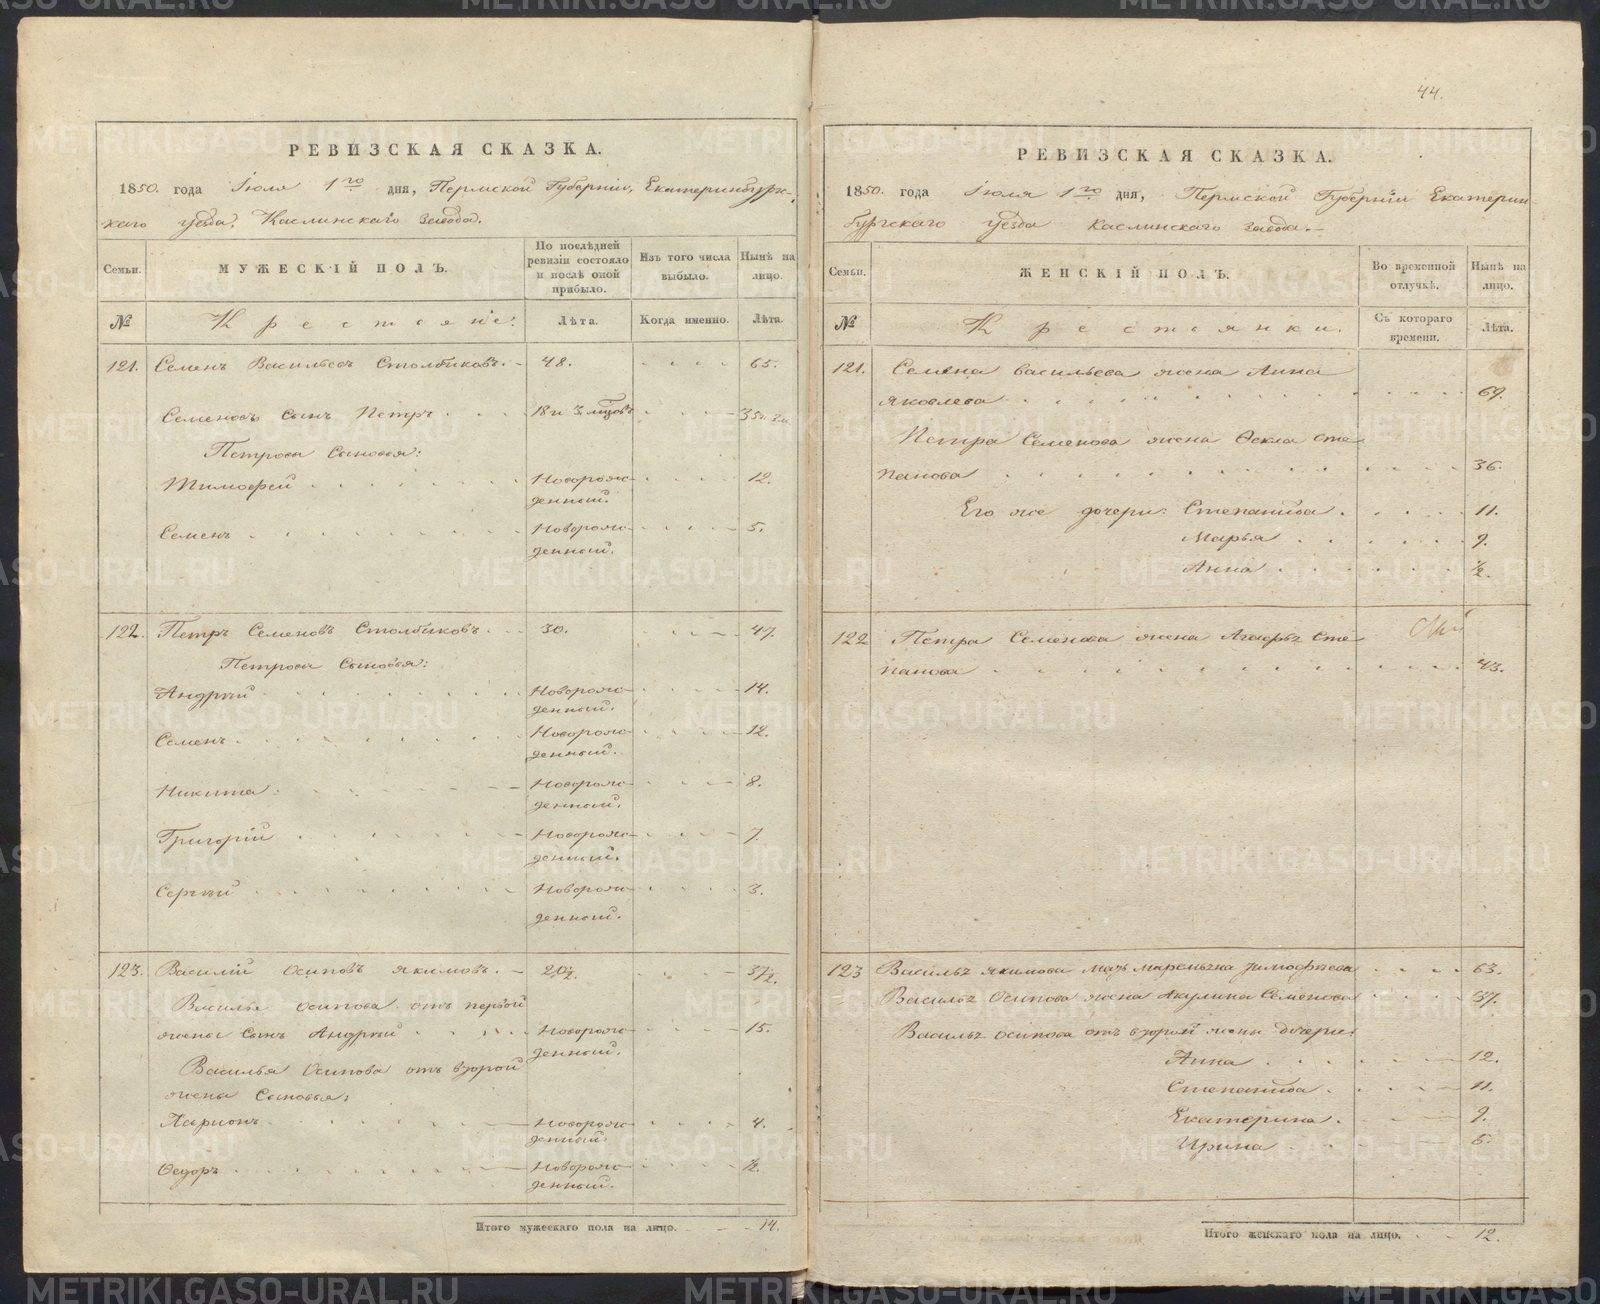 44.
РЕВИЗСКАЯ СКАЗКА.
1850. года Іюля 1го дня, Пермской Губерніи, Екатеринбургс-
каго уѣзда, Каслинскаго завода.
Семьи.
МУЖЕСКІЙ ПОЛЪ.
По послѣдней ревизіи состояло и послѣ оной прибыло.
Изъ того числа выбыло.
Нынѣ на лицо.
№
Крестьяне:
Лѣта.
Когда именно.
Лѣта.
121. Семенъ Васильевъ Столбиковъ. 48. 65.
Семеновъ сынъ Петръ 18 и 3 мцовъ
Петрова Сыновья:
Тимофей Новорож- 12.
денный.
Семенъ Новорож- 5.
денный.
122. Петръ Семеновъ Столбиковъ. 30. 47.
Петрова Сыновья:
Андрѣй Новорож- 14.
денный.
Семенъ Новорож- 12.
денный.
Никита Новорож- 8.
денный.
Григорій Новорож- 7.
денный.
Сергѣй Новорож- 3.
денный.
123. Василій Осиповъ Якимовъ. 20½. 37½.
Василья Осипова отъ первой
жены сынъ Андрѣй Новорож- 15.
денный.
Василья Осипова отъ второй
жены Сыновья:
Ларионъ Новорож- 4.
денный.
Ѳедоръ Новорож- ½.
денный.
Итого мужескаго пола на лицо. 14.
РЕВИЗСКАЯ СКАЗКА.
1850. года Іюля 1го дня, Пермской Губерніи Екатерин-
бургскаго уѣзда Каслинскаго завода.
Семьи.
ЖЕНСКІЙ ПОЛЪ.
Во временной отлучкѣ.
Нынѣ на лицо.
№
Крестьянки.
Съ котораго времени.
Лѣта.
121. Семена Васильева жена Анна
Яковлева 69.
Петра Семенова жена Ѳекла Сте-
панова 36.
Его же дочери: Степанида 11.
Марья 9.
Анна ½.
122 Петра Семенова жена Сте-
панова 43.
123 Василья Якимова мать Маремьяна Тимофѣева 63.
Василья Осипова жена Акулина Семенова 37.
Василья Осипова отъ второй жены дочери:
Анна 12.
Степанида 11.
Екатерина 9.
Ирина 6.
Итого женскаго пола на лицо. 12.
METRIKI.GASO-URAL.RU